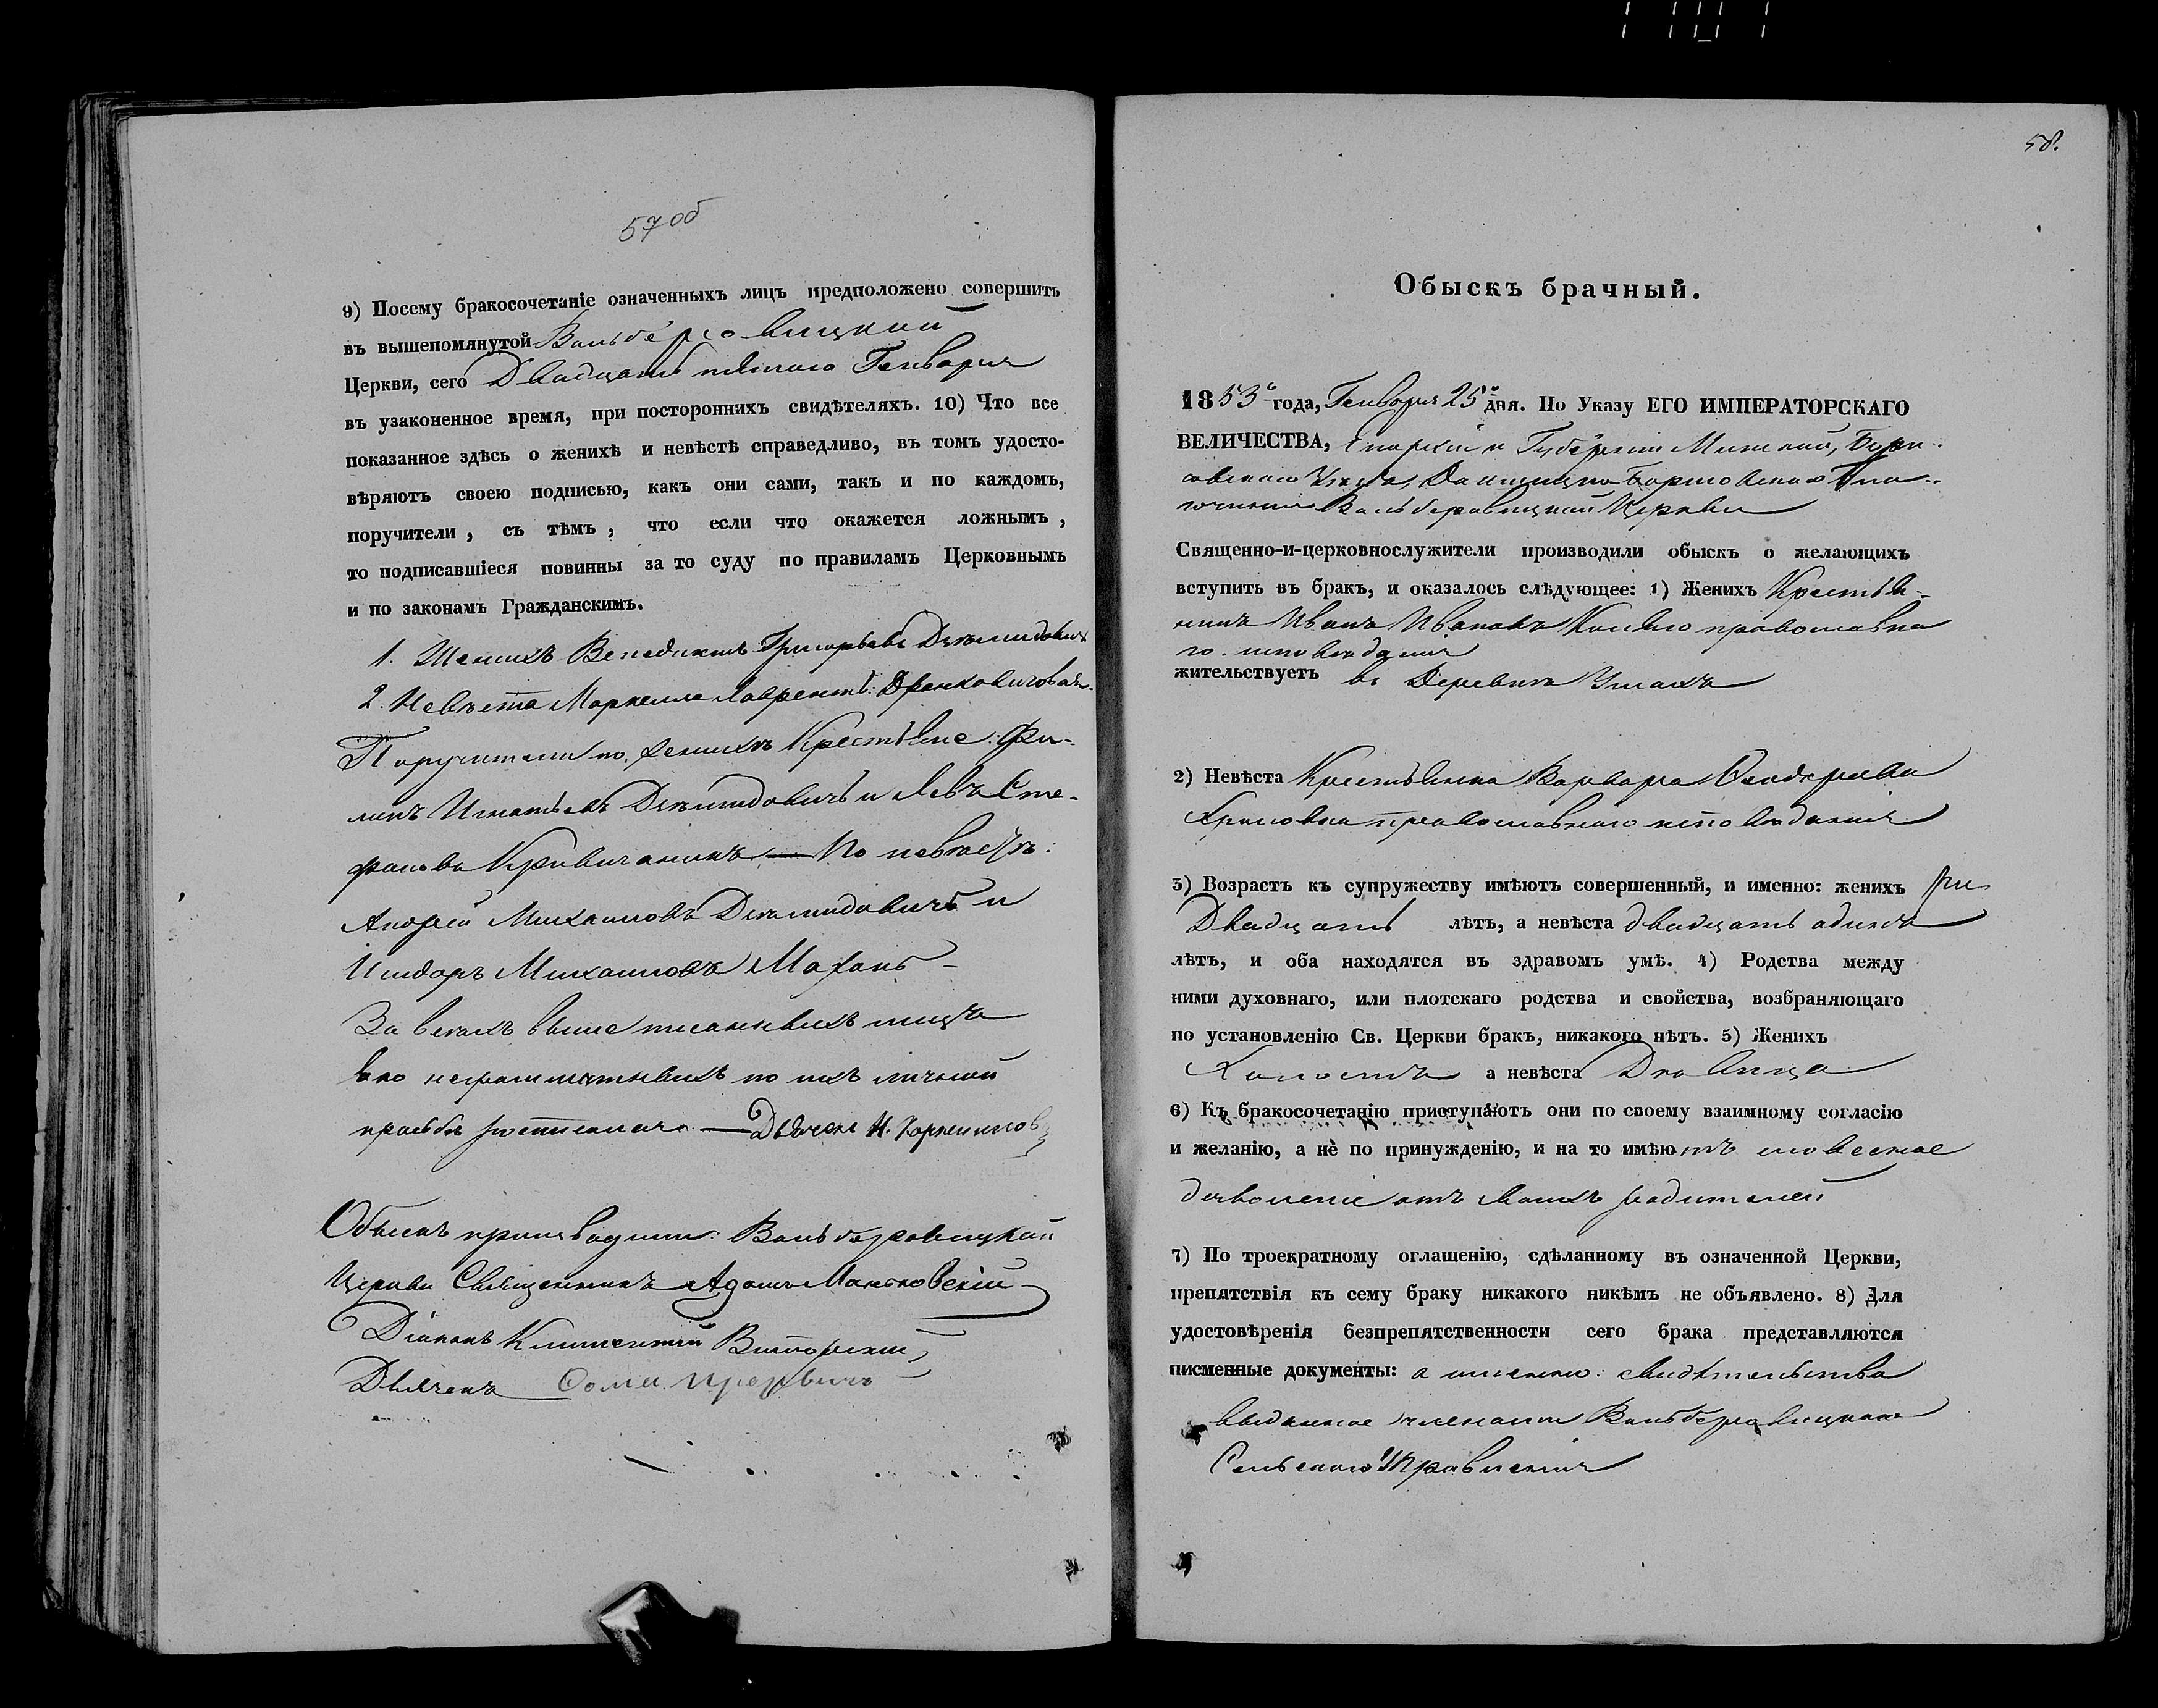 57об
9) Посему бракосочетаніе означенныхъ лицъ предположено совершить
въ вышепомянутой Вольберовицкой
Церкви, сего Двадцать пятого Генваря
въ узаконенное время, при постороннихъ свидѣтеляхъ. 10) Что все
показанное здѣсь о женихѣ и невѣстѣ справедливо, въ томъ удосто-
вѣряютъ своею подписью, какъ они сами, такъ и по каждомъ,
поручители, съ тѣмъ, что если что окажется ложнымъ,
то подписавшіеся повинны за то суду по правиламъ Церковнымъ
и по законамъ Гражданскимъ.
1. Женихъ Венедиктъ Григорьевъ
2. Невѣста Лаврент:
Поручители по женихѣ Крестьяне: Фи-
липъ Игнатьевъ и Левъ Сте-
фановъ Кривичанинъ — По невѣстѣ:
Андрей Михайловъ и
Исидоръ Михайловъ
За всѣхъ выше писанныхъ лицъ
неграмотныхъ по ихъ личной
просьбѣ росписался — Дьячекъ
Обыскъ производили: Вольберовицкой
Церкви Священникъ Адамъ
Діаконъ Климентій
Дьячекъ
58.
Обыскъ брачный.
1853го года, Генваря 25го дня. По Указу ЕГО ИМПЕРАТОРСКАГО
ВЕЛИЧЕСТВА, Епархіи и Губерніи Минской, Бори-
совского Уѣзда, Бла-
гочинія Вольберовицкой Церкви
Священно-и-церковнослужители производили обыскъ о желающихъ
вступить въ бракъ, и оказалось слѣдующее: 1) Женихъ Крестья-
нинъ Иванъ Ивановъ православна
го исповѣданія
жительствуетъ въ Деревнѣ
2) Невѣста Крестьянка Варвара
православного исповѣданія
3) Возрастъ къ супружеству имѣютъ совершенный, и именно: женихъ
Двадцать лѣтъ, а невѣста двадцать одинъ
лѣтъ, и оба находятся въ здравомъ умѣ. 4) Родства между
ними духовнаго, или плотскаго родства и свойства, возбраняющаго
по установленію Св. Церкви бракъ, никакого нѣтъ. 5) Женихъ
Холостъ а невѣста Дѣвица
6) Къ бракосочетанію приступаютъ они по своему взаимному согласію
и желанію, а не по принужденію, и на то имѣютъ словесное
дозволеніе отъ своихъ родителей
7) По троекратному оглашенію, сдѣланному въ означенной Церкви,
препятствія къ сему браку никакого никѣмъ не объявлено. 8) Для
удостовѣренія безпрепятственности сего брака представляются
писменные документы: а именно: свидѣтельство
выданное членами Вольберовицкого
Сельского Управленія